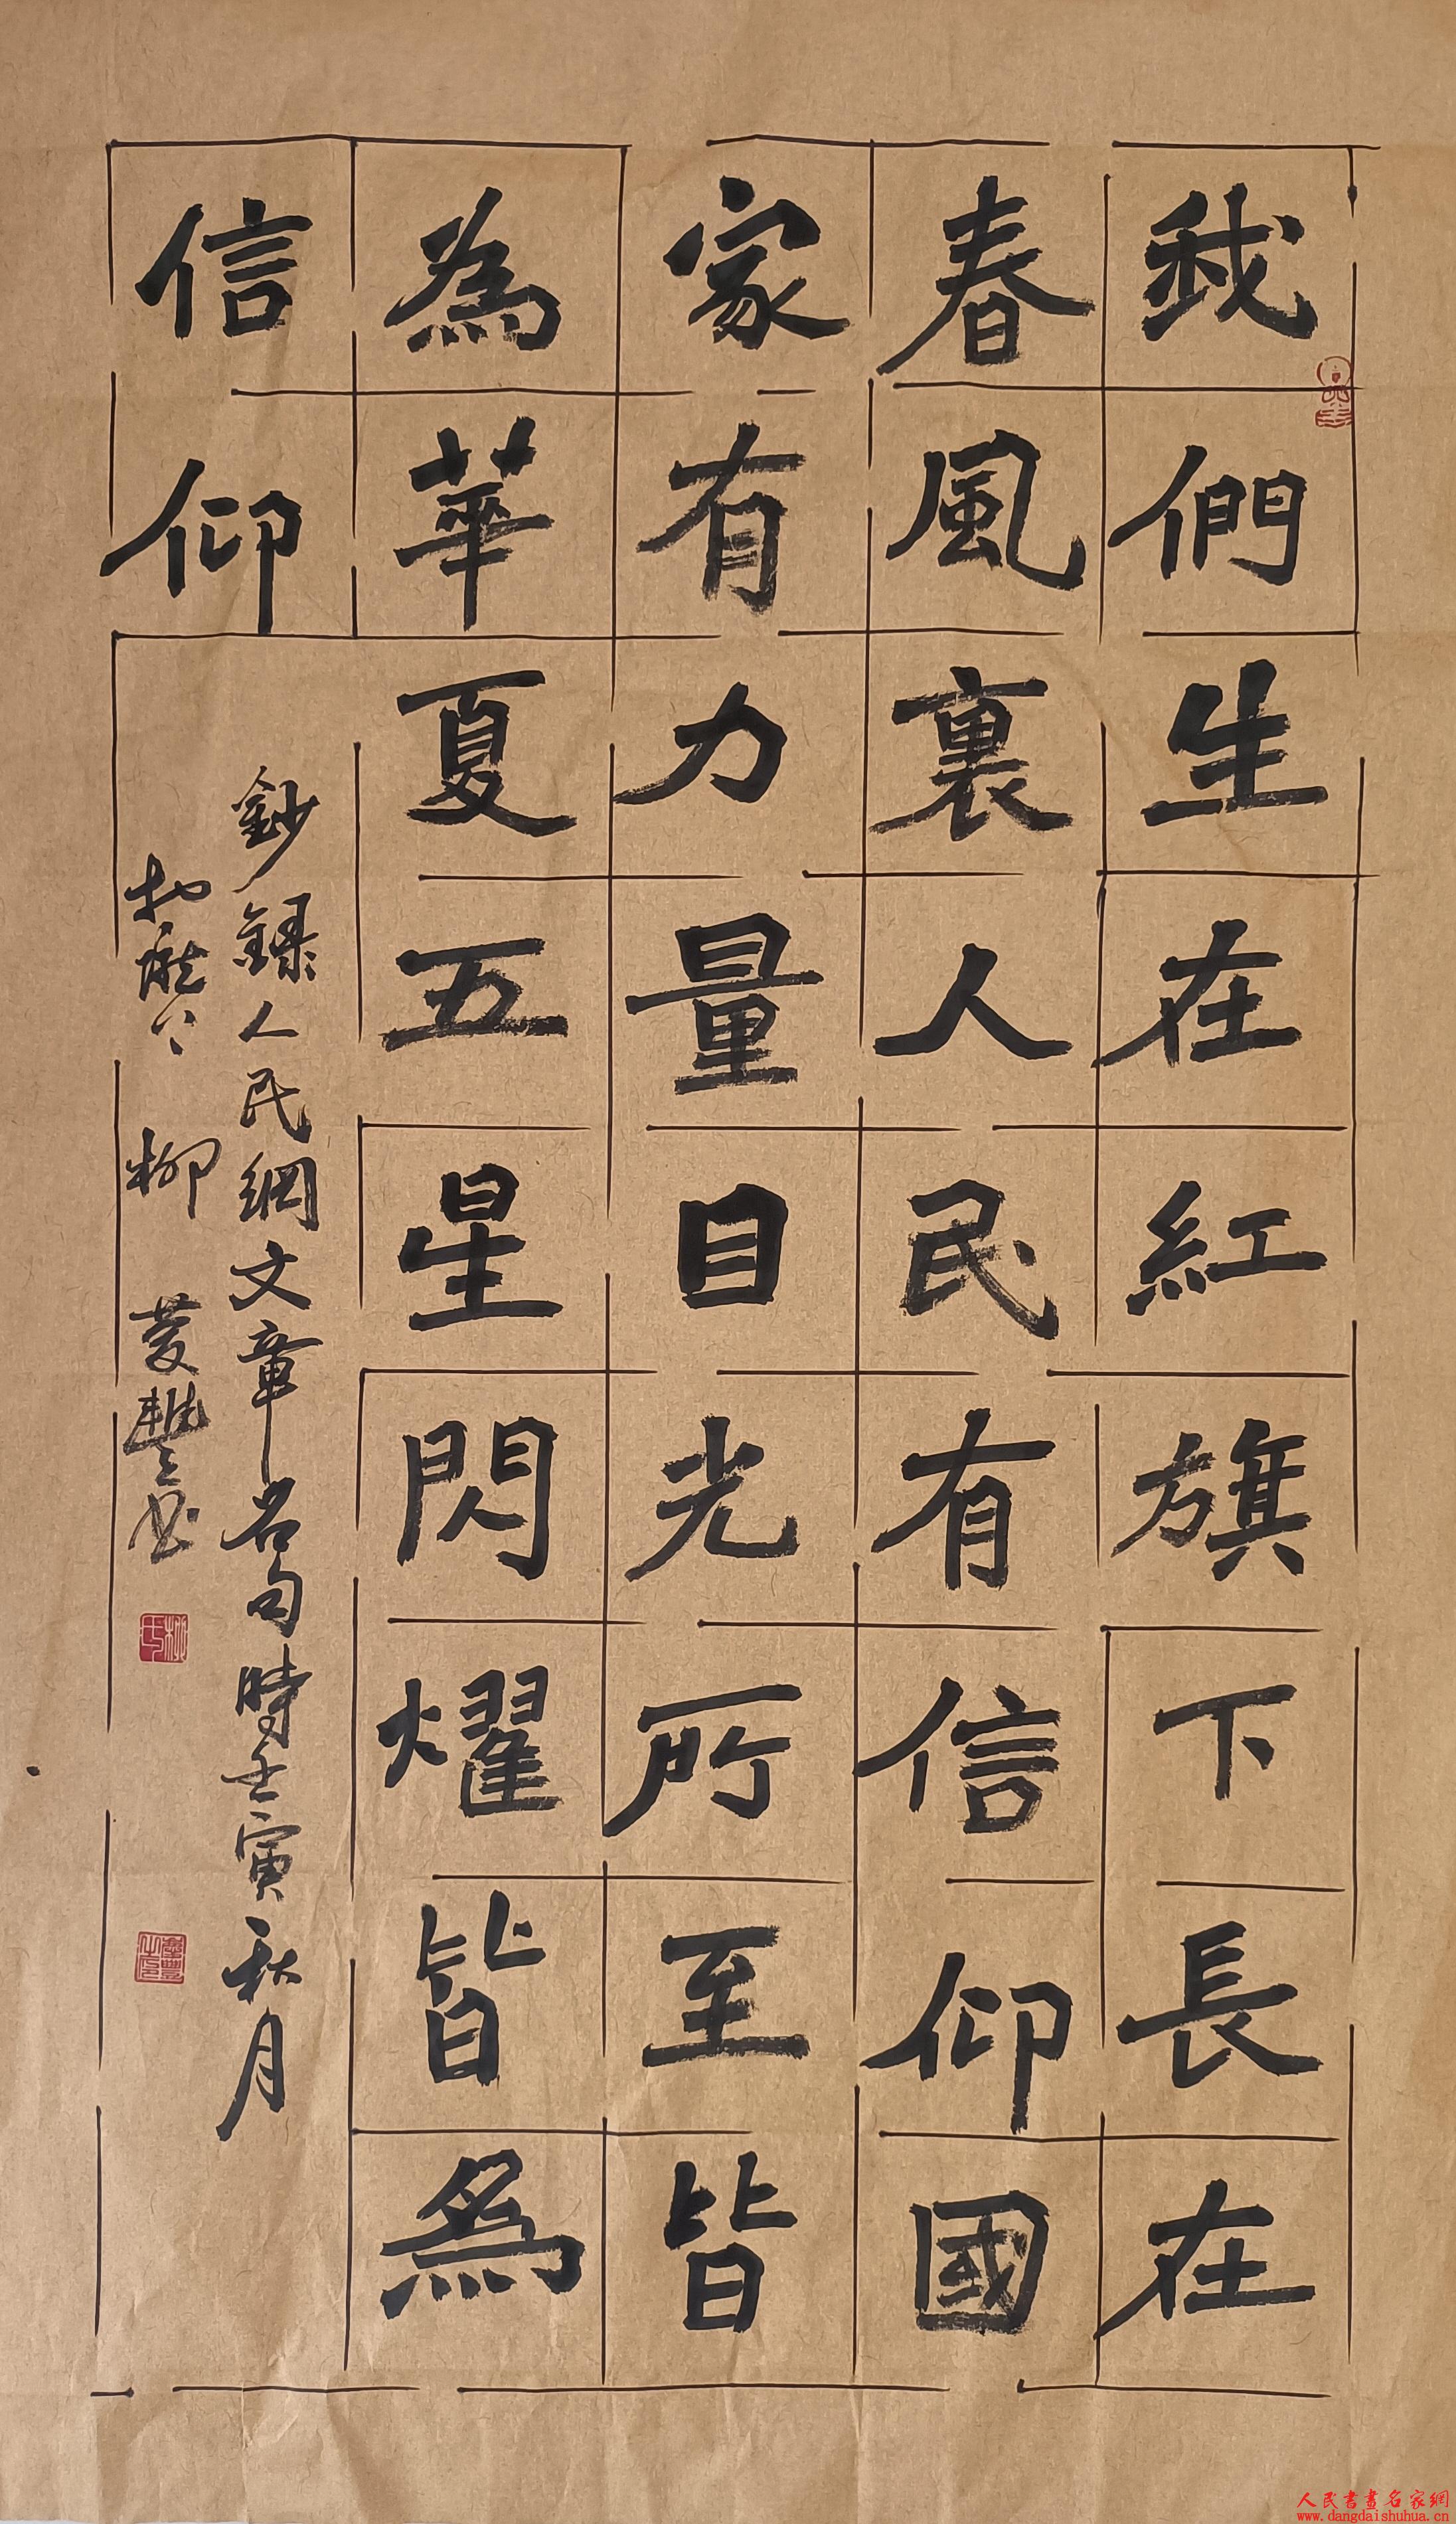 我們生在紅旗下長在
春風裏人民有信仰國
家有力量目光所至皆
為華夏五星閃耀皆為
信仰
鈔錄人民網文章名句時壬寅秋月
柳慶豐書
人民書畫名家網
www.dangdaishuhua.cn